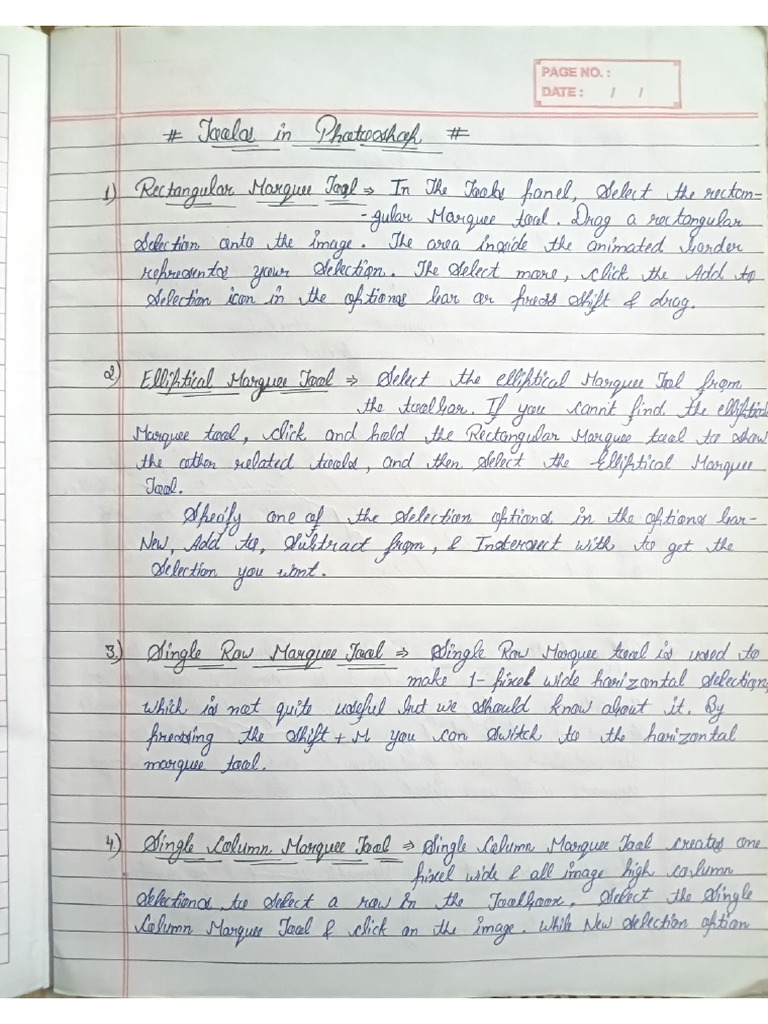 PAGE NO. :
DATE : / /
# Tools in Photoshop #
1) Rectangular Marquee Tool ⇒ In The Tools panel, Select the rectan-
-gular Marquee tool. Drag a rectangular
Selection onto the image. The area inside the animated border
represents your Selection. The Select more, click the Add to
Selection icon in the options bar or press Shift & drag.
2) Elliptical Marquee Tool ⇒ Select the elliptical Marquee Tool from
the toolbar. If you cann't find the elliptical
Marquee tool, click and hold the Rectangular Marquee tool to show
the other related tools, and then Select the Elliptical Marquee
Tool.
Specify one of the Selection options in the options bar-
New, Add to, Subtract from, & Intersect with to get the
Selection you want.
3.) Single Row Marquee Tool ⇒ Single Row Marquee tool is used to
make 1-pixel wide horizontal selection,
which is not quite useful but we should know about it. By
pressing the Shift + M you can switch to the horizontal
marquee tool.
4.) Single Column Marquee Tool ⇒ Single Column Marquee Tool creates one
pixel wide & all image high column
Selections to select a row in the Toolbox, Select the Single
Column Marquee Tool & click on the image. While New selection option